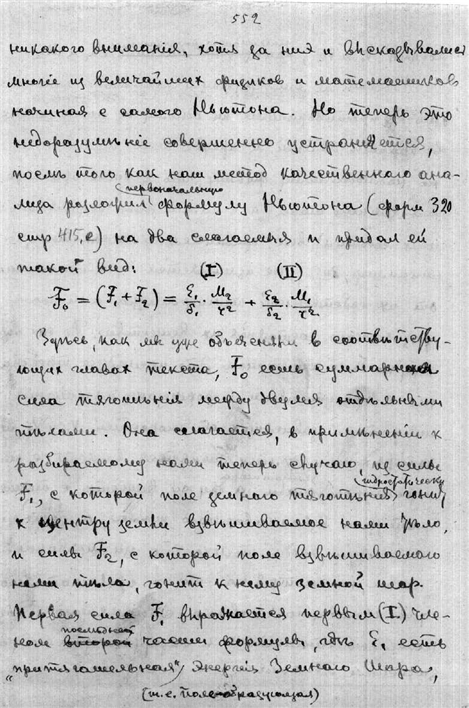 552
никакого вниманія, хотя за нея и высказывались
многіе из величайших физиков и математиков
начиная с самого Ньютона. Но теперь это
недоразумѣніе совершенно устраняется,
послѣ того как наш метод качественного ана-
первоначальную
лиза разложил формулу Ньютона (форм 320
стр 415,e) на два слагаемыя и придал ей
такой вид: (I) (II)
F₀ = (F₁ + F₂) = ε₁/δ₁ · M₂/r² + ε₂/δ₂ · M₁/r²
Здѣсь, как мы уже объясняли в соотвѣтству-
ющих главах текста, F₀ есть суммарная
сила тяготѣнія между двумя отдѣльными
тѣлами. Она слагается, в примѣненіи к
разбираемому нами теперь случаю, из силы
гидростатически
F₁, с которой поле земного тяготѣния гонит
к центру земли взвѣшиваемое нами тѣло,
и силы F₂, с которой поле взвѣшиваемого
нами тѣла, гонит к нему земной шар.
Первая сила F₁ выражается первым (I) чле-
ном второй части формулы, гдѣ ε₁ есть
„притягательная" энергія Земного Шара,
(т.е. поле образующая)